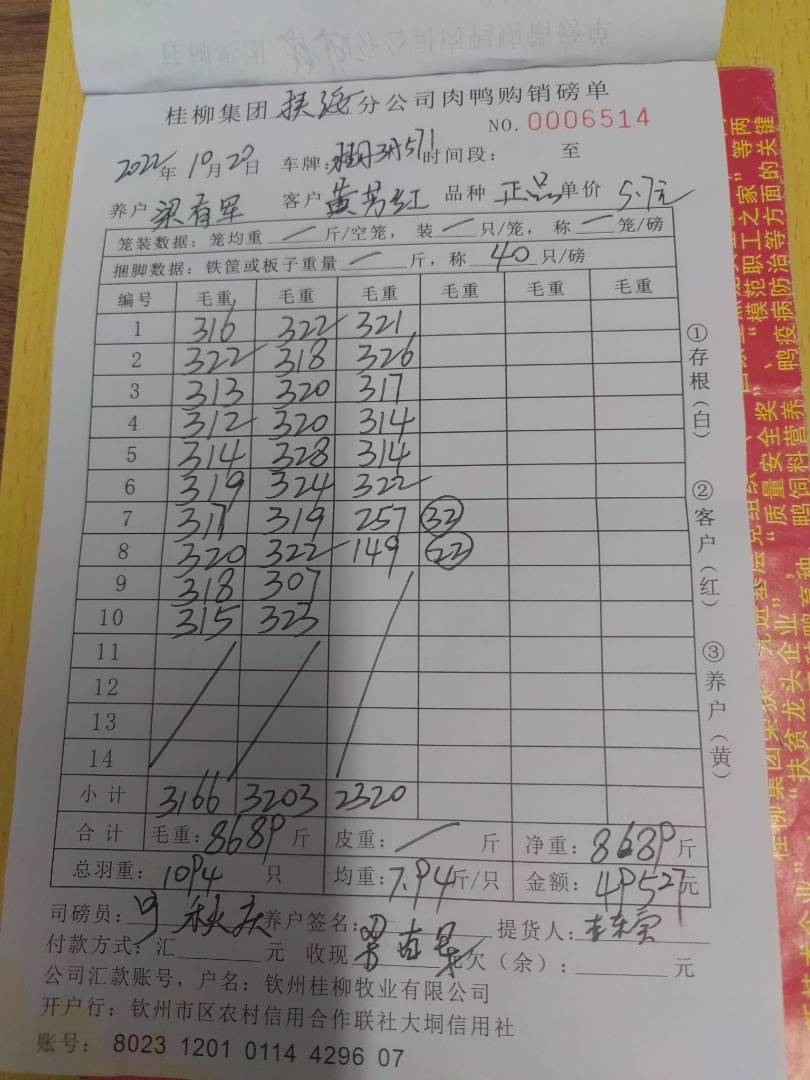 桂柳集团 扶绥 分公司肉鸭购销磅单
NO. 0006514
2022年10月20日 车牌: 时间段: 至
养户 梁有军 客户 黄芳红 品种 正品 单价 5.7元
笼装数据:笼均重 一 斤/空笼, 装 一 只/笼, 称 一 笼/磅
捆脚数据:铁筐或板子重量 一 斤,称 40 只/磅
编号 毛重 毛重 毛重 毛重 毛重 毛重
1 316 322 321
2 322 318 326
3 313 320 317
4 312 320 314
5 314 328 314
6 319 324 322
7 317 319 257 32
8 320 322 149 22
9 318 307
10 315 323
11
12
13
14
小计 3166 3203 2320
合计 毛重:8689 斤 皮重: 一 斤 净重:8689 斤
总羽重: 1094 只 均重:7.94斤/只 金额:49527元
司磅员: 秋庆 养户签名: 提货人:
付款方式:汇 元 收现 元欠(余): 元
公司汇款账号,户名:钦州桂柳牧业有限公司
开户行:钦州市区农村信用合作联社大垌信用社
账号: 8023 1201 0114 4296 07
①存根(白)
②客户(红)
③养户(黄)
“模范职工之家”等两
“质量安全奖”、
鸭疫病防治等方面的关键
“扶贫龙头企业”
鸭饲料营养、